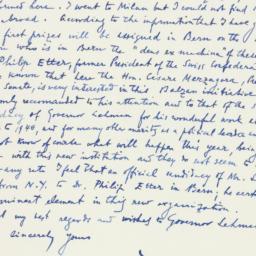 formed here. I went to Milan but I could not find
abroad. According to the information that I have
first prizes will be assigned in Bern on the
who is in Bern the "deus ex machina" of the
Philip Etter, former President of the Swiss Confeder
known that here the Hon. Cesare Merzagora,
Senate, is very interested in this Balzan initiative.
recommended to his attention and to that of the
of Governor Lehman for his wonderful work
to 1940, and for many other merits as a political leader
not know of course what will happen this year, being
with this new institution and they do not seem to
any rate I feel that an official candidacy of Mr.
from N.Y. to Dr. Philip Etter in Bern, he
prominent element in this new organization.
my best regards and wishes to Governor Lehman
Sincerely yours